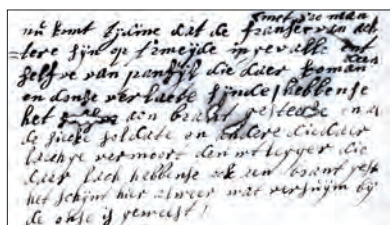 nu komt tydine dat de franse van ach
tere sijn op ermeyde ingevalle
selfve van die daer koman
en donse verlaete sijnde hebbense
het aen brant gestecke en al
de sieke soldate en andere die daer
lach vermoort den wtlegger die
daer lach hebbense ock aen brant gest
het schijnt hier alweer wat versuijm bij
de onse is geweest!